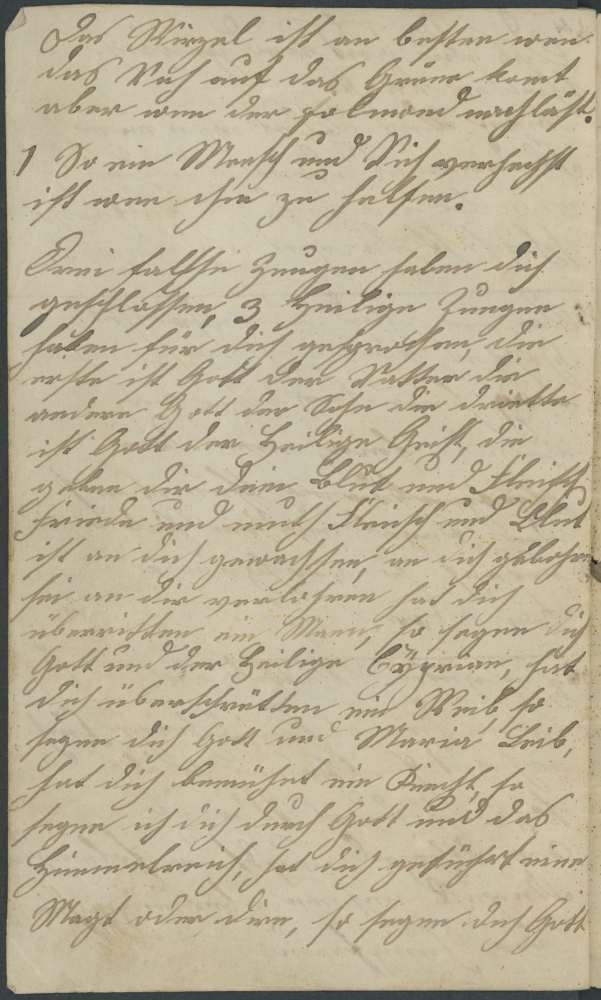 Das Wirzel ist an besten wen
das Vich auf das Grüne komt
aber wen der folmond nachläst.
1 So ein Mensch und Vich verhechst
ist wen ihn zu helfen.
Drei falsche Zeugen haben dich
geschlossen, 3 Heilige Zungen
haben für dich gesprochen, die
erste ist Gott der Vatter die
andere Gott der Sohn die driette
ist Gott der Heilige Geist, die
geben dir dein Blut und Fleisch
friede und muth Fleisch und Blut
ist an dich gewachsen, an dich gebohren
sei an dir verlohren hat dich
überritten ein Mann, so segne dich
Gott und der Heilige Cÿprian, hat
dich überschritten ein Weib, so
segne dich Gott und Maria Leib,
hat dich bemühet ein Knecht, so
segne ich dich durch Gott und das
Himmelreich, hat dich geführt eine
Magt oder dirn, so segne dich Gott